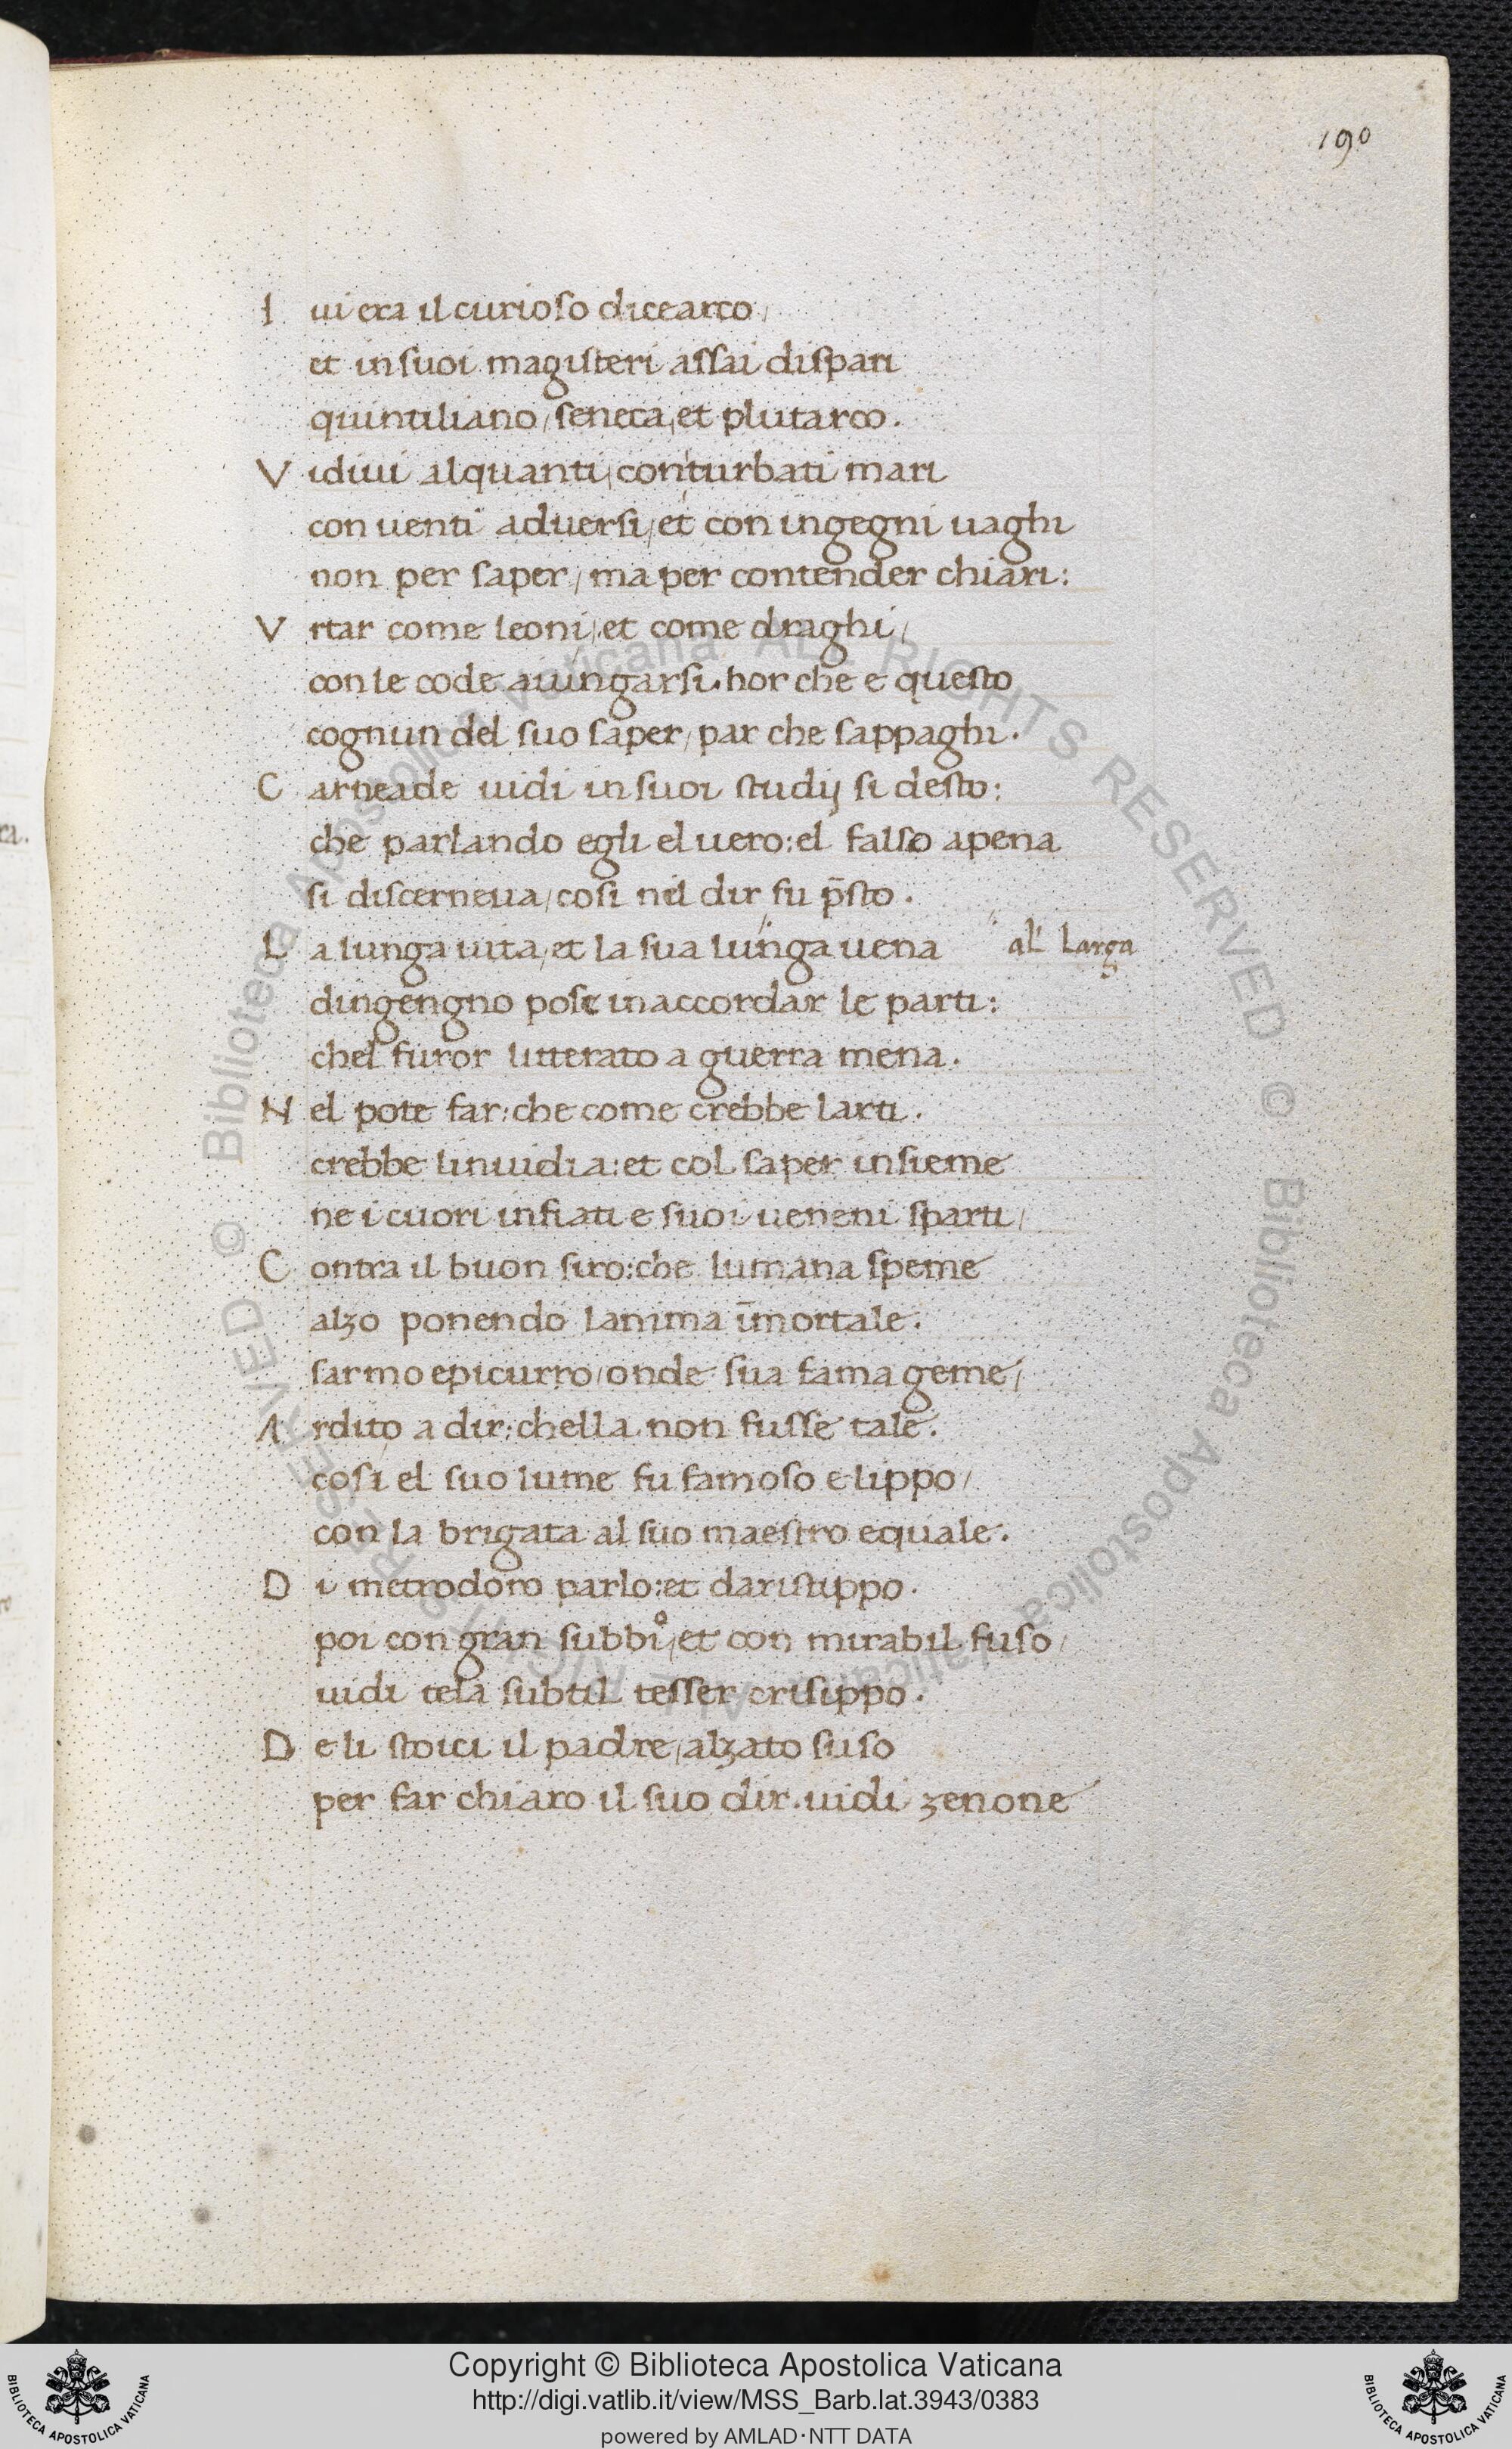 190
I ui era il curioso dicearco/
et in suoi magisteri assai dispari
quintiliano/seneca/et plutarco.
V idiui alquanti/conturbati mari
con uenti aduersi/et con ingegni uaghi
non per saper/ma per contender chiari:
V rtar come leoni/et come draghi/
con le code auingarsi. hor che e questo
cognun del suo saper/par che sappaghi.
C arneade uidi in suoi studij si desto:
che parlando egli el uero:el falso apena
si discerneua/cosi nel dir fu p̄sto.
L a lunga uita/et la sua lunga uena al' Larga
dingengno pose in accordar le parti:
chel furor litterato a guerra mena.
N el pote far:che come crebbe larti.
crebbe linuidia:et col saper insieme
ne i cuori infiati e suoi ueneni sparti/
C ontra il buon siro:che lumana speme
alzo ponendo lanima īmortale.
sarmo epicurro/onde sua fama geme/
A rdito a dir:chella non fusse tale.
cosi el suo lume fu famoso e lippo/
con la brigata al suo maestro equale.
D i metrodoro parlo:et daristippo.
poi con gran subbio/et con mirabil fuso/
uidi tela subtil tesser crisippo.
D e li stoici il padre/alzato suso
per far chiaro il suo dir. uidi zenone
© Biblioteca Apostolica Vaticana ALL RIGHTS RESERVED © Biblioteca Apostolica Vaticana ALL RIGHTS RESERVED
Copyright © Biblioteca Apostolica Vaticana
http://digi.vatlib.it/view/MSS_Barb.lat.3943/0383
powered by AMLAD·NTT DATA
BIBLIOTECA APOSTOLICA VATICANA
BIBLIOTECA APOSTOLICA VATICANA